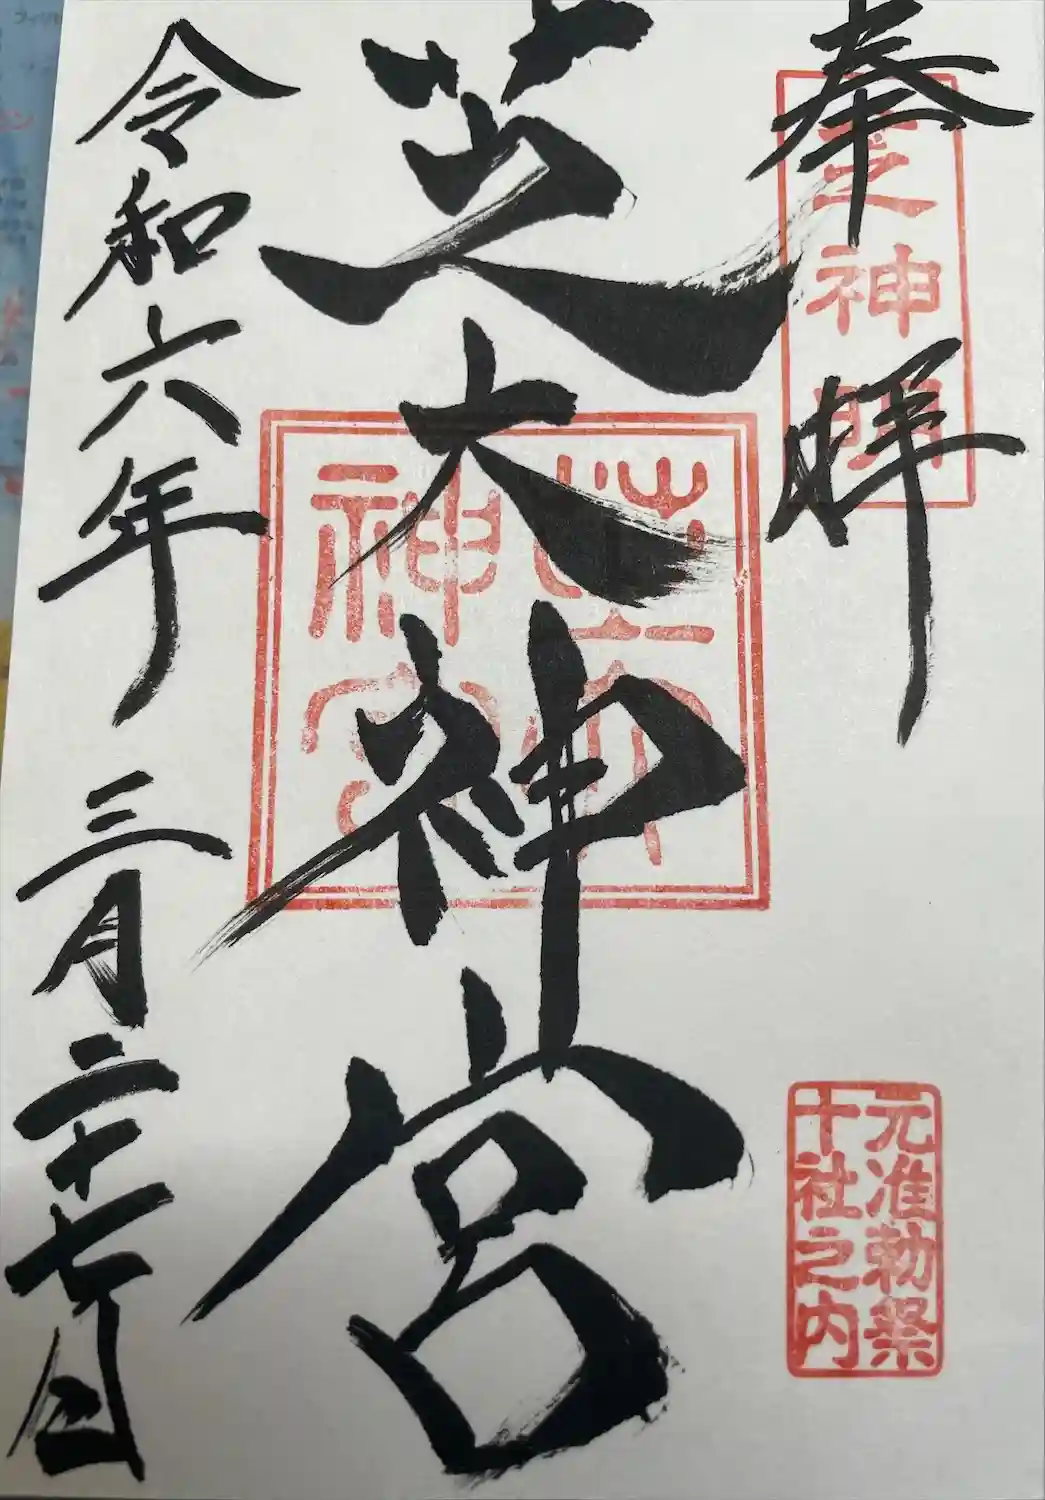 奉拝
芝神明
元准勅祭
十社之内
芝大神宮
芝大
神宮
令和六年 三月二十七日